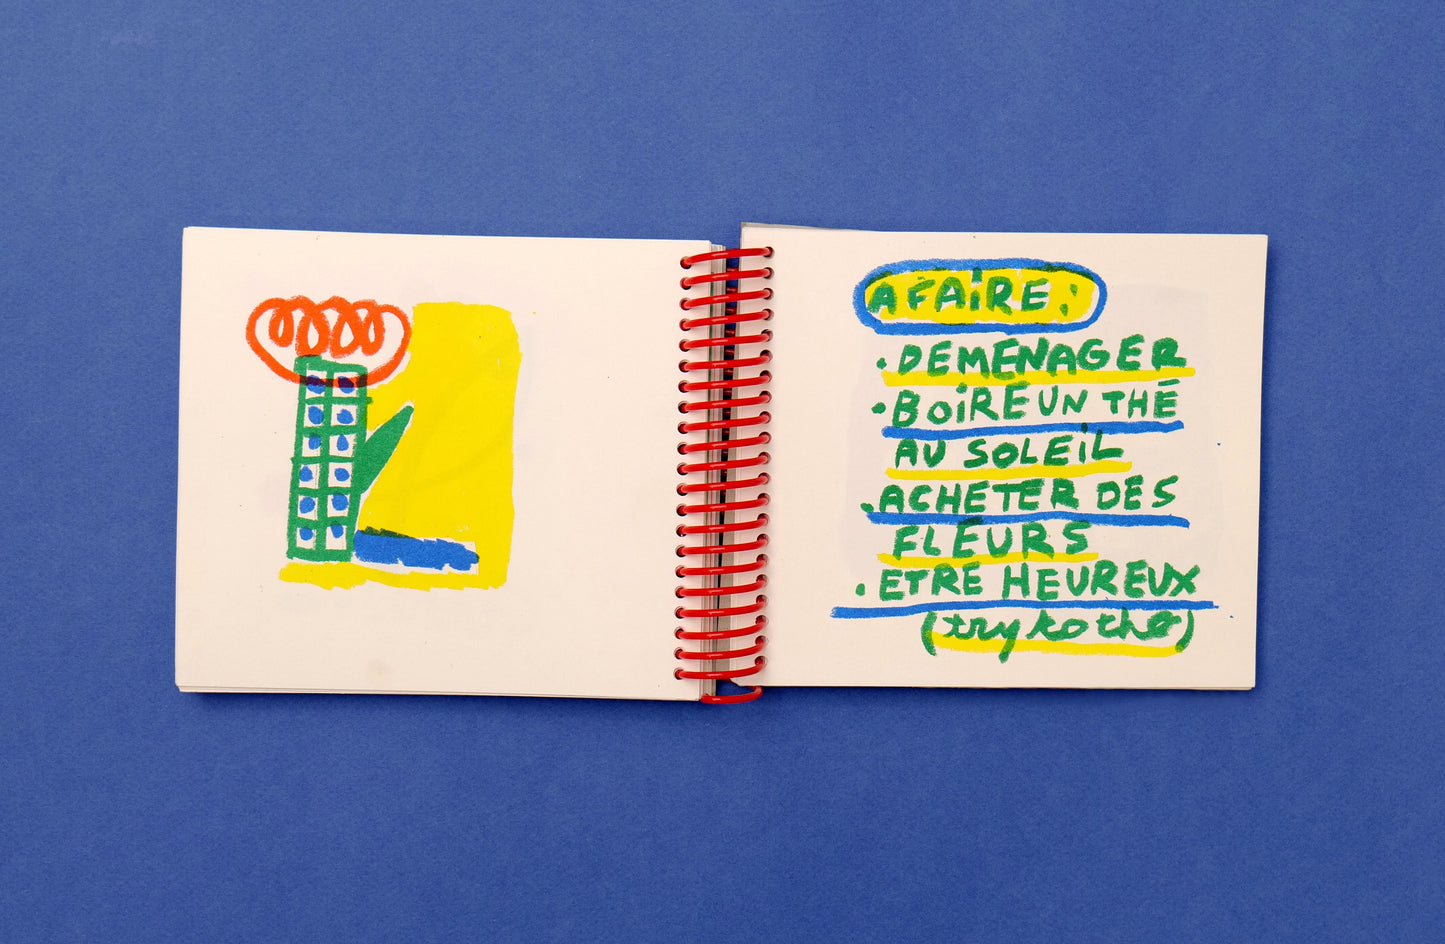 A FAiRE:
· DEMENAGER
· BOiRE UN THÉ
AU SOLEiL
· ACHETER DES
FLEURS
· ETRE HEUREUX
(try to the)